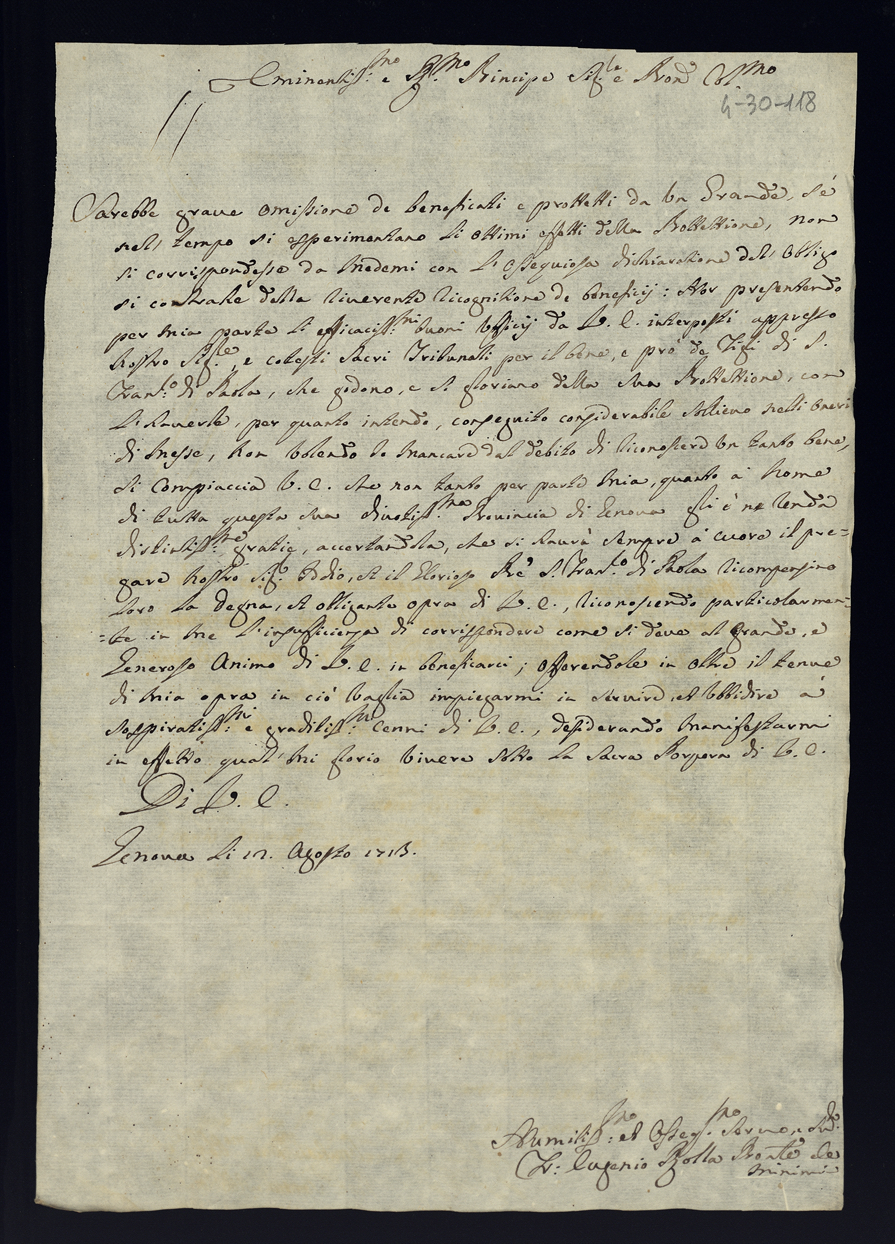 Eminentiss:mo e R.mo Principe Sig:re e Pron Col:mo
4-30-118
Sarebbe graue omissione de beneficati e prottetti da un Grande, sé
nell' tempo si esperimentano li ottimi effetti della Prottettione, non
si corrispondesse da medemi con l'ossequiosa dichiaratione dell' obligo
si contrahe della riuerente ricognitione de beneficij: Hor presentendo
per mia parte li efficacciss:mi buoni ufficij da V. E. interposti appresso
Nostro Sig:re, e cotesti Sacri Tribunali per il bene, e prò de Figli di S.
Fran:co di Paola, che godono, e si gloriano della sua Prottettione, con
l'hauerle, per quanto intendo, conseguito considerabile sollieuo nelli oneri
di messe, Non uolendo io mancare dal debito di riconoscere un tanto bene,
si compiaccia V. E. che non tanto per parte mia, quanto à nome
di tutta questa sua diuotiss:ma Prouincia di Genoua gli è ne renda
distintiss:me gratie, accertandola, che si haurà sempre à cuore il pre=
gare Nostro Sig:r Iddio, et il Glorioso Pre S. Fran:co di Paola ricompensino
loro la degna, et obligante opra di V. E., riconoscendo particolarmen=
=te in me l'insufficienza di corrispondere come si deue al grande, e
Generoso Animo di V. E. in beneficarci; offerendole in oltre il tenue
di mia opra in ciò uaglia impiegarmi in seruire, et ubbidire à
sospiratiss:mi e graditiss:mi cenni di V. E., desiderando manifestarmi
in effetto qual' mi glorio uiuere sotto la Sacra Porpora di V. E.
Di V. E.
Genoua li 12. Agosto 1713.
Humiliss:mo et Osseq:mo Seruo, e
Fr: Eugenio Prole de
Minimi